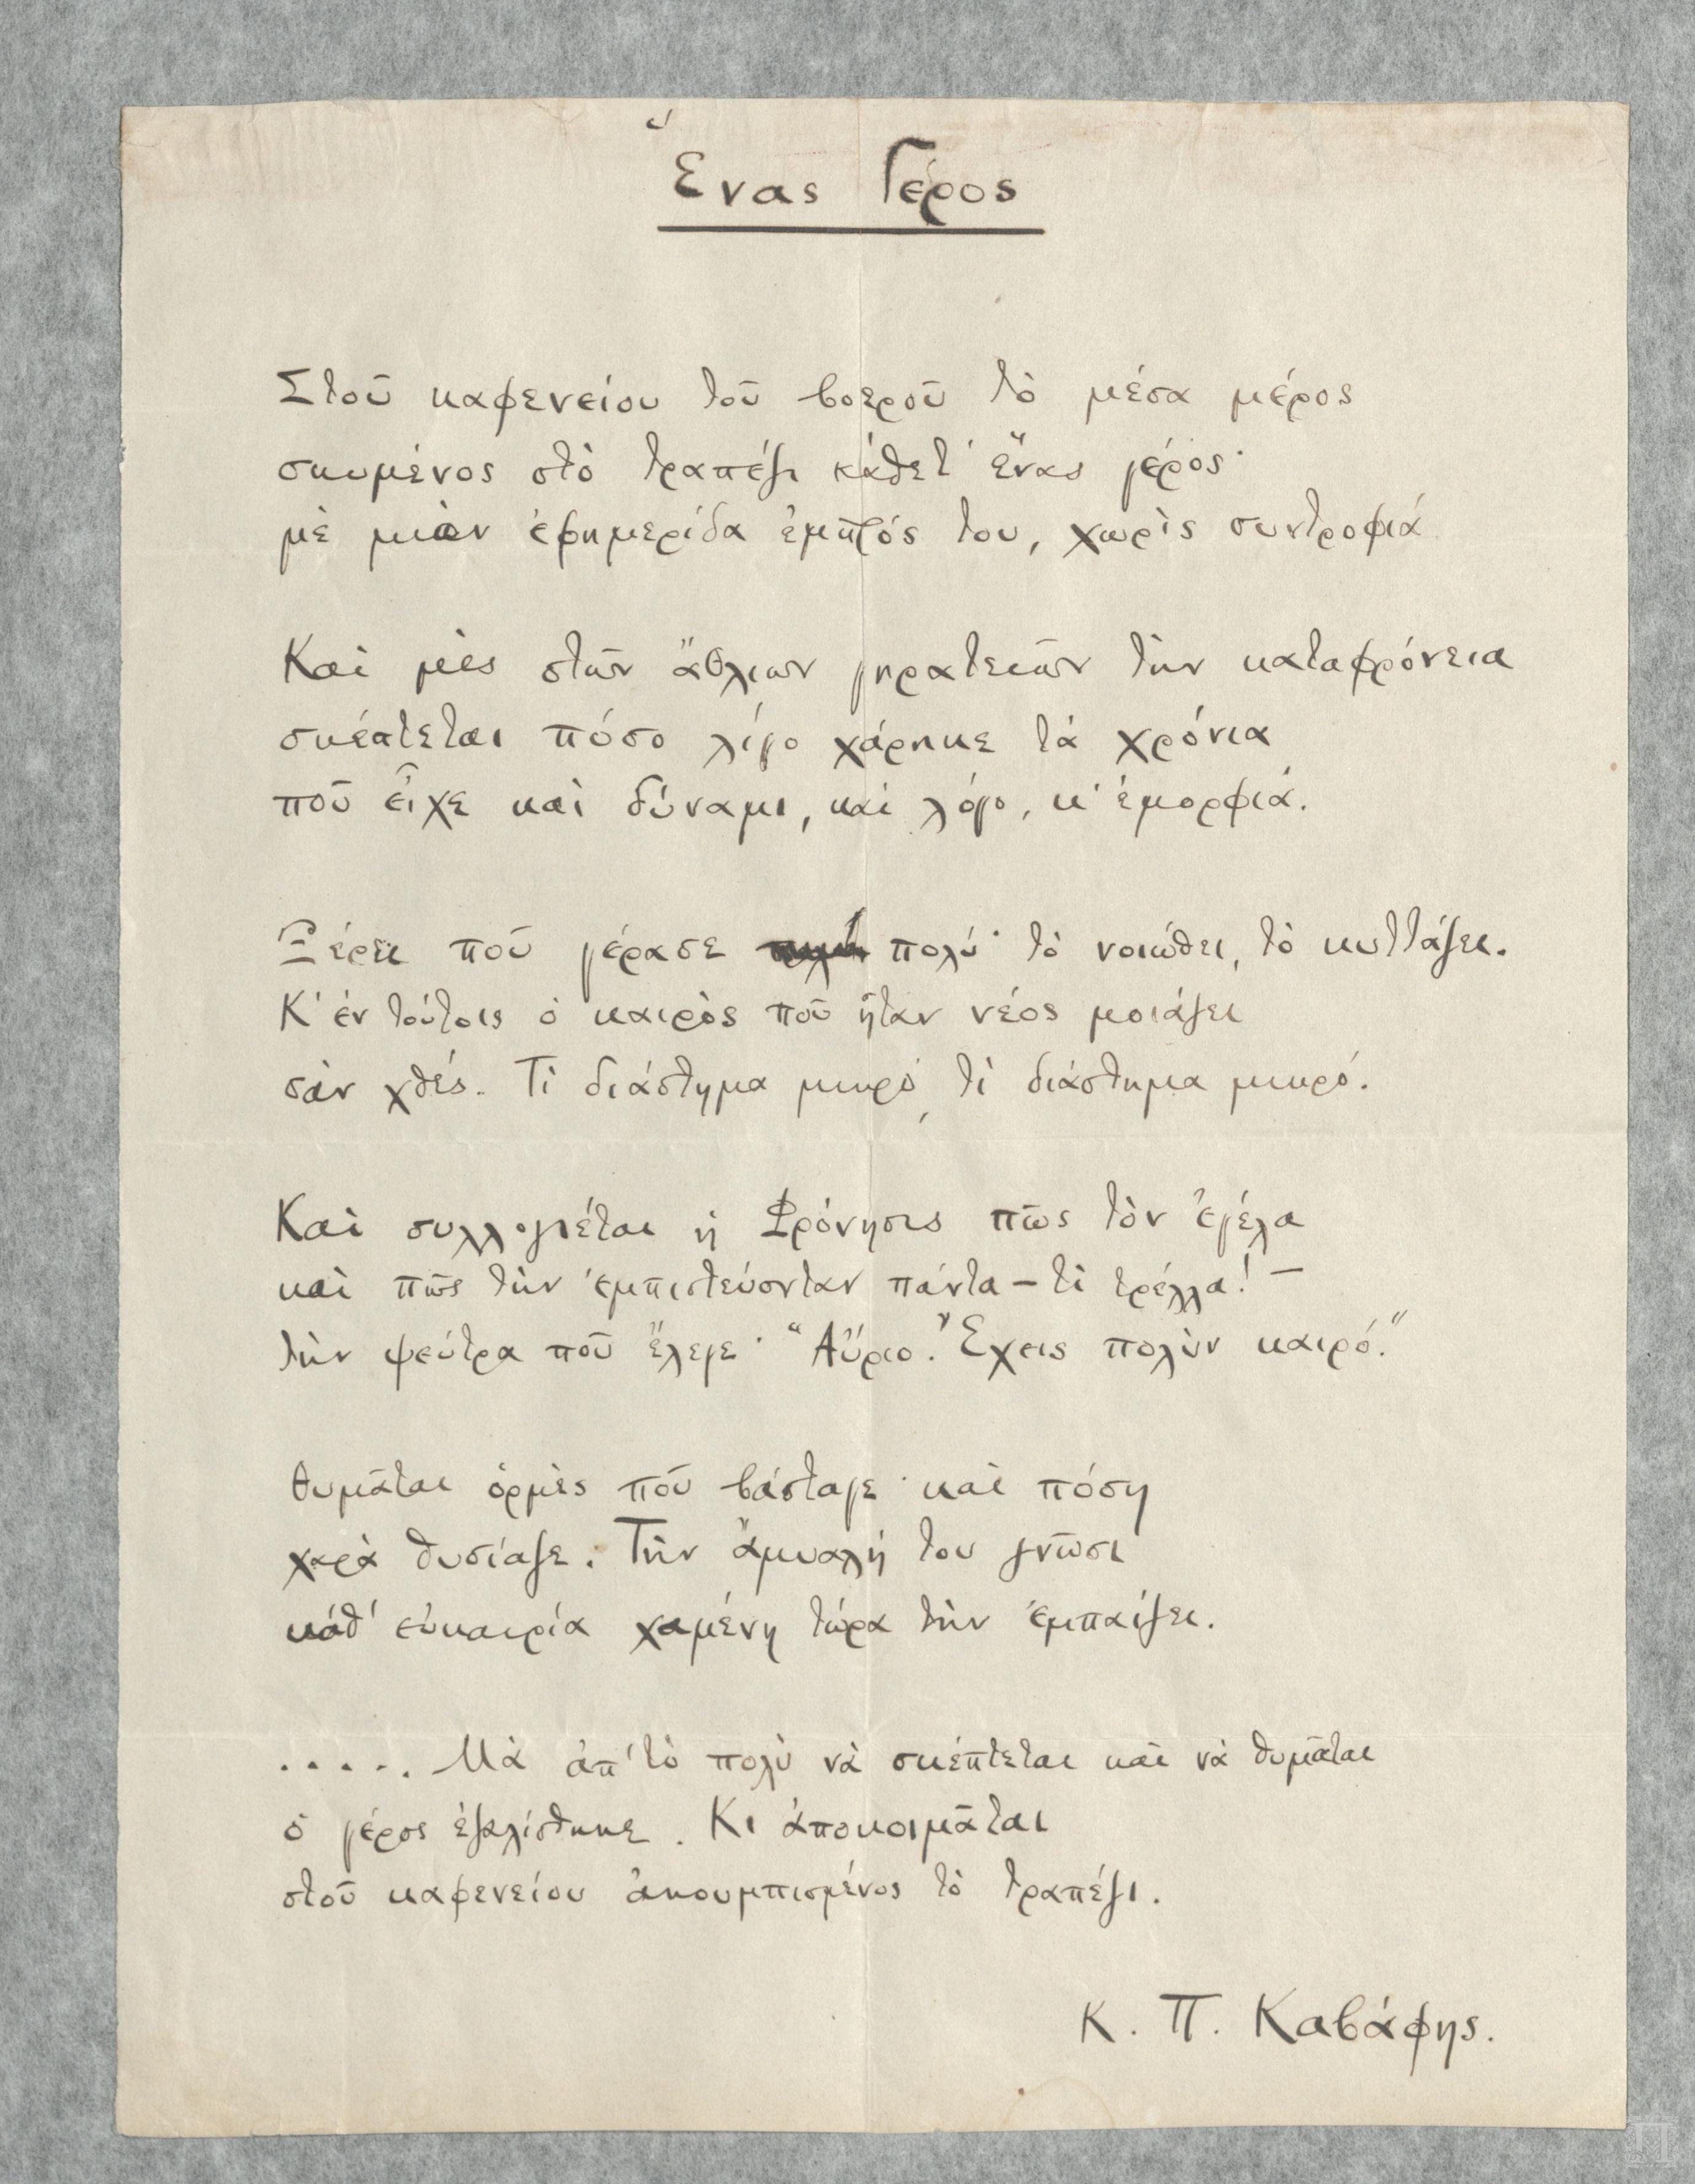 Ἕνας Γέρος
Στοῦ καφενείου τοῦ βοεροῦ τὸ μέσα μέρος
σκυμένος στὸ τραπέζι κάθετ' ἕνας γέρος·
μὲ μιὰν ἐφημερίδα ἐμπρός του, χωρὶς συντροφιά
Καὶ μὲς στῶν ἄθλιων γηρατειῶν τὴν καταφρόνεια
σκέπτεται πόσο λίγο χάρηκε τὰ χρόνια
ποῦ εἶχε καὶ δύναμι, καὶ λόγο, κ' ἐμορφιά.
Ξέρει ποῦ γέρασε πολύ· τὸ νοιώθει, τὸ κυττάζει.
Κ' ἐν τούτοις ὁ καιρὸς ποῦ ἦταν νέος μοιάζει
σὰν χθές. Τὶ διάστημα μικρό, τὶ διάστημα μικρό.
Καὶ συλλογιέται ἡ Φρόνησις πῶς τὸν ἐγέλα
καὶ πῶς τὴν ἐμπιστεύονταν πάντα — τὶ τρέλλα! —
τὴν ψεύτρα ποῦ ἔλεγε· "Αὔριο. Ἔχεις πολὺν καιρό."
Θυμᾶται ὁρμὲς ποῦ βάσταγε· καὶ πόση
χαρὰ θυσίαζε. Τὴν ἄμυαλή του γνῶσι
κάθ' εὐκαιρία χαμένη τώρα τὴν ἐμπαίζει.
..... Μὰ ἀπ' τὸ πολὺ νὰ σκέπτεται καὶ νὰ θυμᾶται
ὁ γέρος ἐζαλίσθηκε. Κι ἀποκοιμᾶται
στοῦ καφενείου ἀκουμπισμένος τὸ τραπέζι.
Κ. Π. Καβάφης.